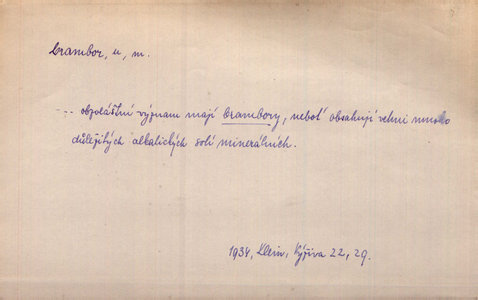 brambor, u, m.
... obzvláštní význam mají brambory, neboť obsahují velmi mnoho
důležitých alkalických solí minerálních.
1934, Klein, Výživa 22, 29.